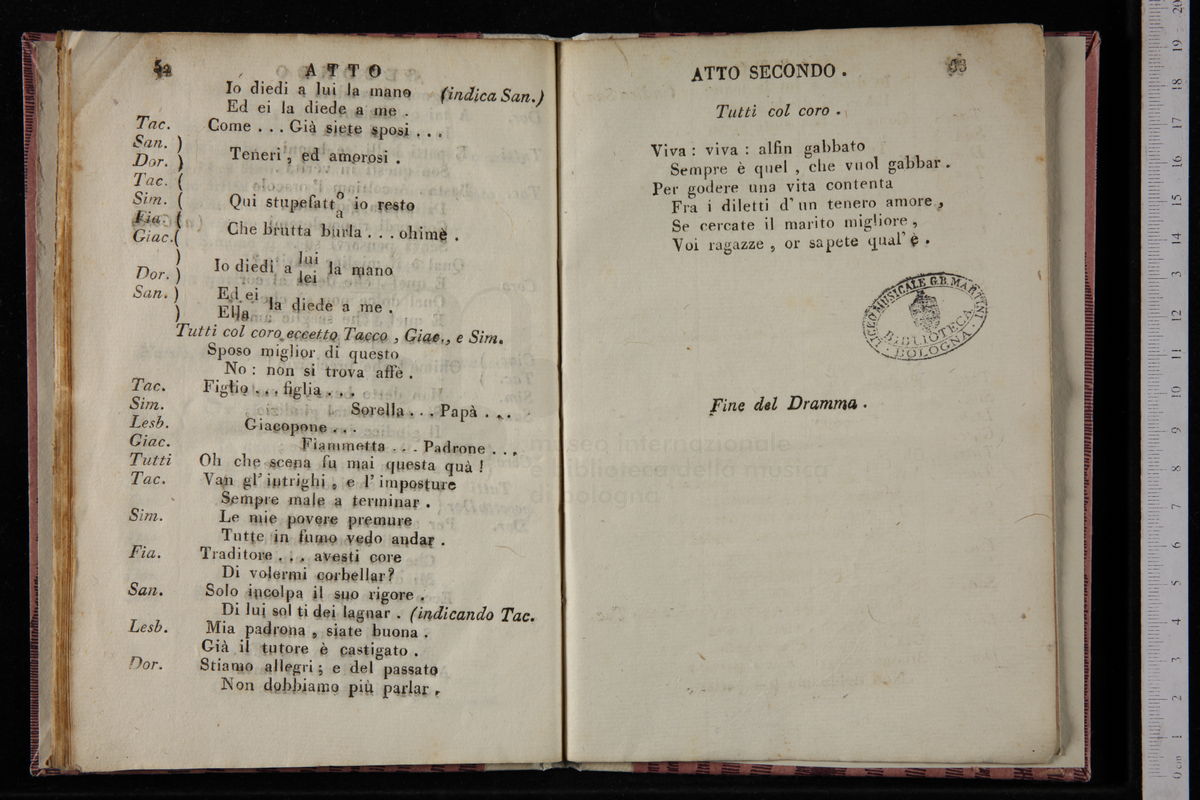 52
ATTO
Io diedi a lui la mano (indica San.)
Ed ei la diede a me .
Tac. Come . . . Già siete sposi . . .
San. )
Dor. ) Teneri , ed amorosi .
Tac. (
Sim. ( Qui stupefatt o a io resto
Fia. (
Giac. ( Che brutta burla . . . ohimè .
)
Dor. ) Io diedi a lui lei la mano
San. ) Ed ei
) Ella la diede a me .
Tutti col coro eccetto Tacco , Giac., e Sim.
Sposo miglior di questo
No : non si trova affè .
Tac. Figlio . . . figlia . . .
Sim. Sorella . . . Papà . . .
Lesb. Giacopone . . .
Giac. Fiammetta . . . Padrone . . .
Tutti Oh che scena fu mai questa quà !
Tac. Van gl' intrighi , e l' imposture
Sempre male a terminar .
Sim. Le mie povere premure
Tutte in fumo vedo andar .
Fia. Traditore . . . avesti core
Di volermi corbellar?
San. Solo incolpa il suo rigore .
Di lui sol ti dei lagnar . (indicando Tac.
Lesb. Mia padrona , siate buona .
Già il tutore è castigato .
Dor. Stiamo allegri ; e del passato
Non dobbiamo più parlar .
ATTO SECONDO . 53
Tutti col coro .
Viva : viva : alfin gabbato
Sempre è quel , che vuol gabbar .
Per godere una vita contenta
Fra i diletti d' un tenero amore ,
Se cercate il marito migliore ,
Voi ragazze , or sapete qual' è .
LICEO MUSICALE G.B. MARTINI
BIBLIOTECA
· BOLOGNA ·
Fine del Dramma .
museo internazionale
e biblioteca della musica
di bologna